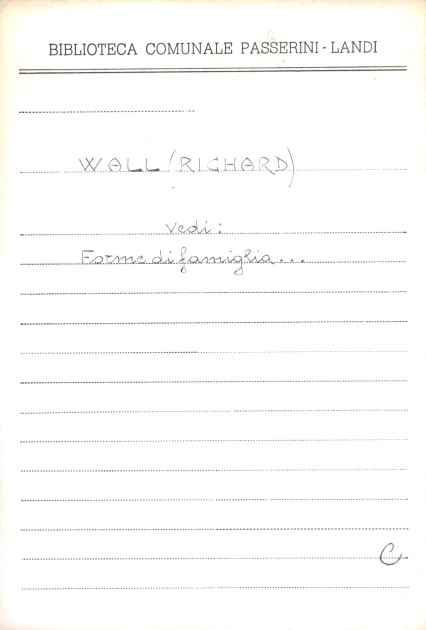 BIBLIOTECA COMUNALE PASSERINI - LANDI
WALL (RICHARD)
Vedi:
Forme di famiglia...
C